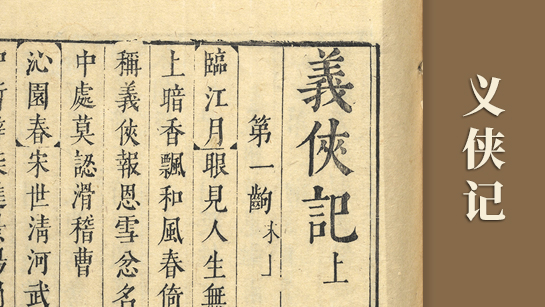 义侠记
義俠記上
第一齣末
臨江月眼見人生無
上暗香飄和風春倚
稱義俠報恩雪忿名
中處莫認滑稽曹
沁園春宋世清河武